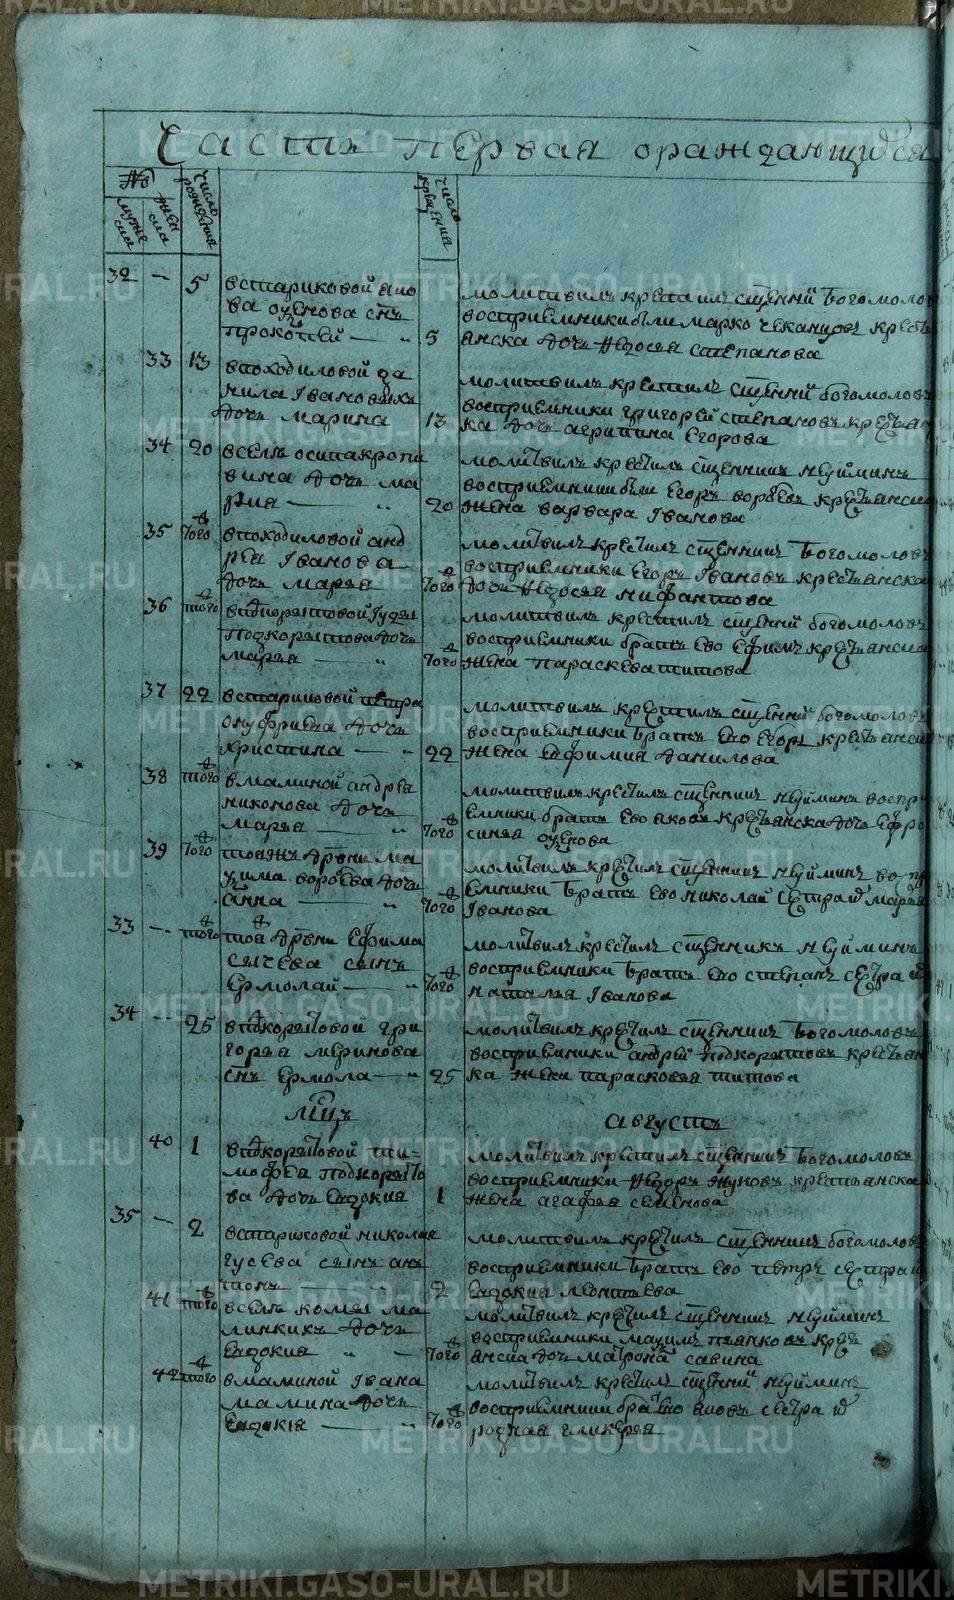 Часть первая ораждающихся
№
мужеска
женска
число рождения
число крещения
32 — 5 встариковой яко
ва сынъ
прокопей — 5
молитвилъ крестилъ сщенникъ Богомолов
восприемники были марко чекануровъ кресть
янска дочь Федосея степанова
33 13 впоходиловой да
нила Івановыхъ
дочь марина 13
молитвилъ крестилъ сщенникъ богомоловъ
восприемники григорей степановъ крестьян
ка дочь агрипина Егорова
34 20 вселѣ осипа кропи
вина дочь ма
рия — 20
молитвилъ крестилъ сщенникъ неуйминъ
восприемники были Егоръ воробьевъ крестьянска
жена варвара Іванова
35 того впоходиловой анд
рея Іванова
дочь марья того
молитвилъ крестилъ сщенникъ Богомоловъ
восприемники Егоръ Івановъ крестьянска
дочь Федосея нифантова
36 того вподкорытовой
Подкорытова дочь
марья — того
молитвилъ крестилъ сщенникъ богомоловъ
восприемники братъ ево Ефимъ крестьянска
жена Параскева титова
37 22 встариковой петра
онуфриева дочь
христина — 22
молитвилъ крестилъ сщенникъ богомоловъ
восприемники братъ ево Егоръ крестьянска
жена Евфимия данилова
38 того вмаминой андрея
никонова дочь
марья — того
молитвилъ крестилъ сщенникъ неуйминъ воспри
емники братъ ево яковъ крестьянска дочь Ефро
синья
39 того тояжъ дрѣвни ма
зима воробева дочь
анна — того
молитвилъ крестилъ сщенникъ неуйминъ воспри
емники братъ ево николай сестра марья
Іванова
33 — того той дрѣвни Ефима
сычева сынъ
Ермолай — того
молитвилъ крестилъ сщенникъ неуйминъ
восприемники братъ ево степанъ сестра
наталья Іванова
34 — 25 вподкорытовой гри
горья меринова
снъ Ермола — 25
молитвилъ крестилъ сщенникъ Богомоловъ
восприемники андрей подкорытовъ крестьян
ка жена парасковья титова
Мцъ августъ
40 1 вподкорытовой ти=
мофея подкорыто
ва дочь Евдокия 1
молитвилъ крестилъ сщенникъ Богомоловъ
восприемники Федоръ жуковъ крестьянска
жена агафья семенова
35 — 2 встариковой николая
гусева сынъ ан
тонъ 2
молитвилъ крестилъ сщенникъ богомоловъ
восприемники братъ ево петръ сестра
Евдокия леонтьева
41 того вселѣ комы ма
линкихъ дочь
Евдокия — того
молитвилъ крестилъ сщенникъ неуйминъ
восприемники пьянковъ крест
янска дочь матрона савина
42 того вмаминой Івана
мамина дочь
Евдокия — того
молитвилъ крестилъ сщенникъ неуйминъ
восприемники братъ ево яковъ сестра
родная гликерья
METRIKI.GASO-URAL.RU